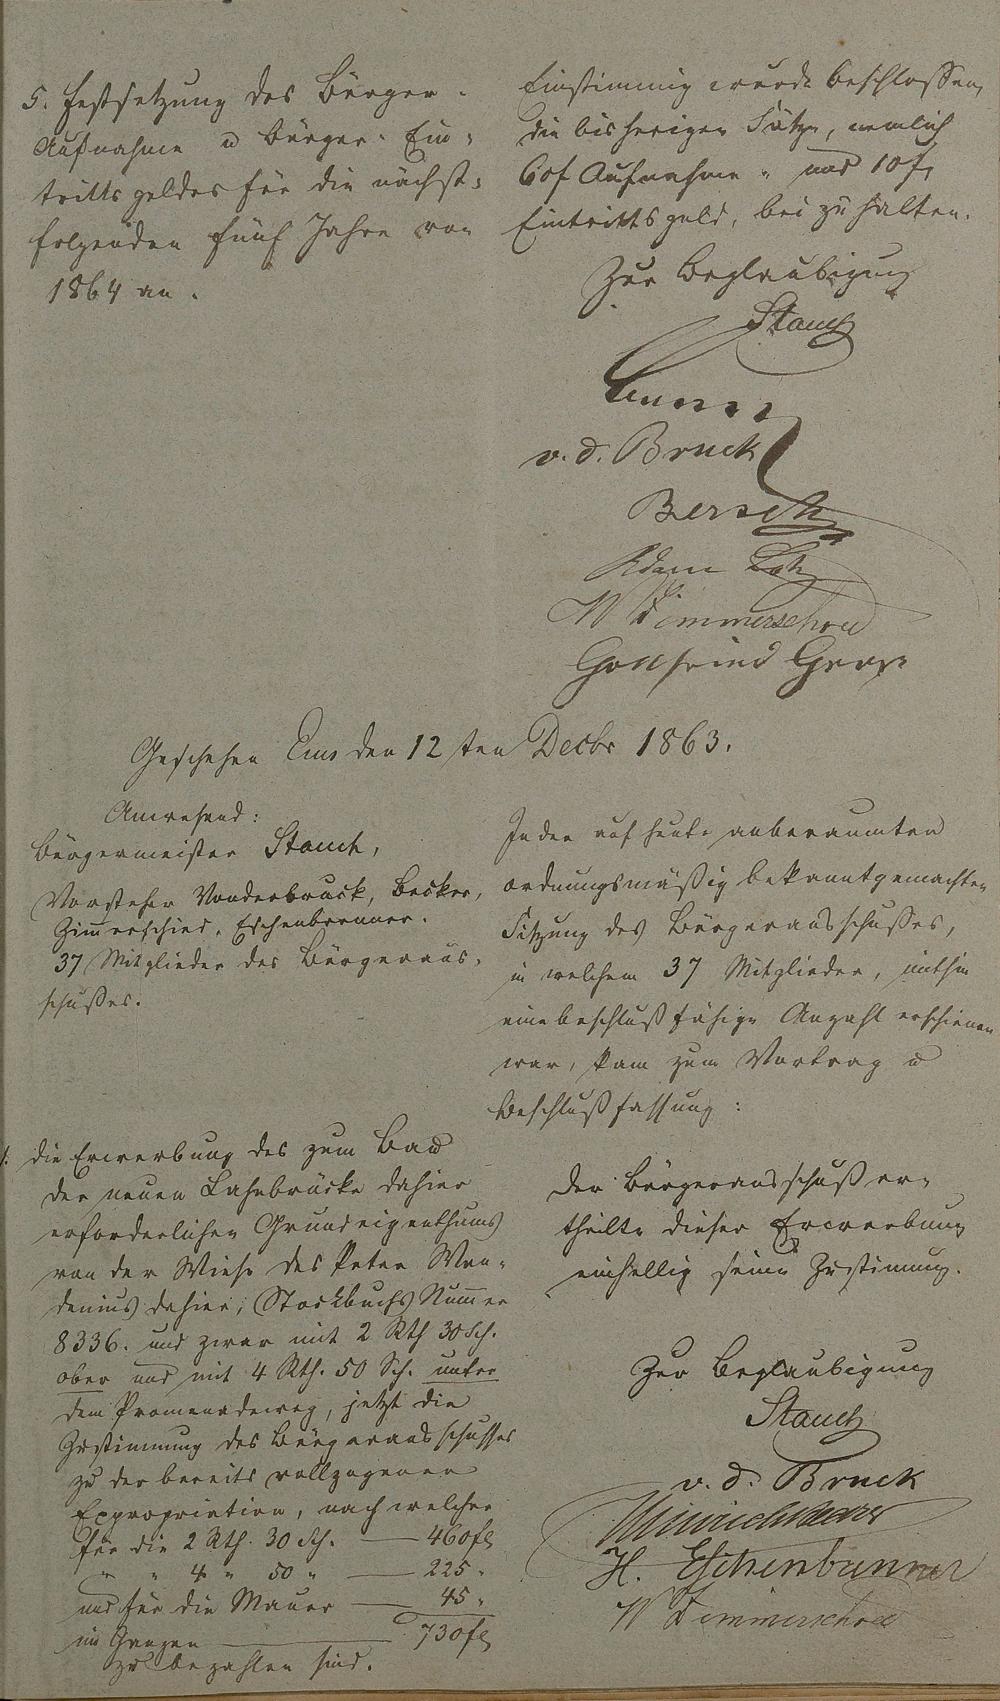 5. Festsetzung des Bürger-
Aufnahme u Bürger-Ein-
trittsgeldes für die nächst-
folgenden fünf Jahre von
1864 an.
Einstimmig wurde beschlossen,
die bisherigen Sätze, nemlich
60f Aufnahme- und 10f,
Eintrittsgeld, bei zu halten.
Zur Beglaubigung
Stauch
v. d. Bruck
Bersch
Adam
W Zimmerschied
Gottfried
Geschehen Ems den 12ten Decbr 1863.
Anwesend:
Bürgermeister Stauch,
Vorsteher Vonderbruck, Becker,
Zim̅erschied, Eschenbrenner.
37 Mitglieder des Bürgeraus-
schußes.
In der auf heute anberaumten
ordnungsmäßig bekanntgemachten
Sitzung des Bürgerausschußes,
in welchem 37 Mitglieder, mithin
eine beschlußfähige Anzahl erschienen
war, kam zum Vortrag u
Beschlußfassung:
1. die Erwerbung des zum Bau
der neuen Lahnbrücke dahier
erforderlichen Grundeigenthums
von der Wiese des Peter Wen-
denius dahier, Stockbuchs Num̅er
8336. und zwar mit 2 Rth 30 Sch.
ober und mit 4 Rth. 50 Sch. unter
dem Promenadeweg, jetzt die
Zustimmung des Bürgerausschusses
zu der bereits vollzogenen
Expropriation, nach welcher
für die 2 Rth. 30 Sch. — 460 fl
" " 4 " 50 " — 225 "
und für die Mauer — 45 "
im Ganzen — 730 fl
zu bezahlen sind.
Der Bürgerausschuß er-
theilte dieser Erwerbung
einhellig seine Zustim̅ung.
Zur Beglaubigung
Stauch
v. d. Bruck
H. Eschenbrenner
W Zimmerschied